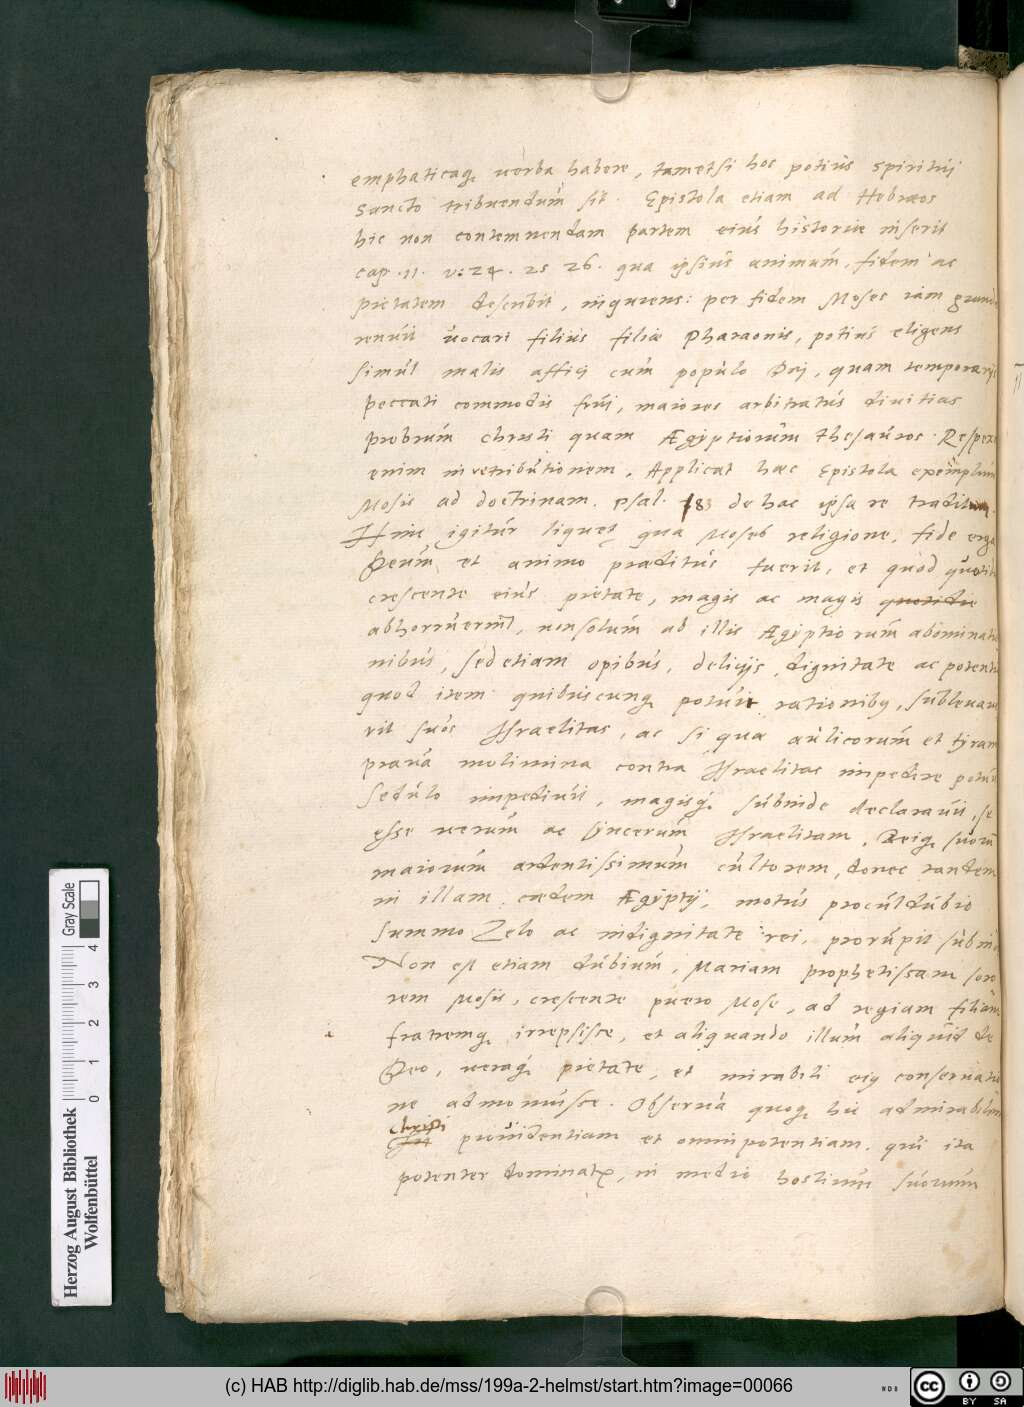 emphaticaq, uerba habere, tametsi hoc potius spiritui
Sancto tribuendum sit. Epistola etiam ad Hebræos
hic non contemnendam partem eius historiæ inserit
cap. 11. v: 24. 25 26. qua ipsius animum, fidem ac
pietatem describit, inquiens: per fidem Moses iam grandis
renuit uocari filius filiæ Pharaonis, potius eligens
simul malis affici cum populo Dei, quam temporarijs
peccati commodis frui, maiores arbitratus diuitias
probrum christi quam Ægyptiorum thesauros. Respexit
enim in retributionem. Applicat hæc Epistola exemplum
Mosis ad doctrinam. Psal. 83 de hac ipsa re traditam.
Hinc igitur liquet qua Moses religione, fide erga
Deum et animo præditus fuerit, et quod quotidie
crescente eius pietate, magis ac magis quotidie
abhorruerint, non solum ab illis Ægyptiorum abominatio
nibus, sed etiam opibus, delicijs, dignitate ac potentia
quod item quibuscunq, potuit rationibus, subleuaue
rit suos Israelitas, ac si qua aulicorum et tyranni
praua molimina contra Israelitas impedire potuit
sedulo impediuit, magisq, subinde declarauit, se
esse uerum ac syncerum Israelitam, Deiq, suorum
maiorum ardentissimum cultorem, donec tandem
in illam cædem Ægyptij, motus proculdubio
summo Zelo ac indignitate rei, prorupit subinde
Non est etiam dubium, Mariam prophetissam soro
rem Mosis, crescente puero Mose, ad regiam filiam
fratremq, irrepsisse, et aliquando illum aliquid de
Deo, ueraq, pietate, et mirabili eius conseruatio
ne admonuisse. Obserua quoq, hic admirabilem
christi
prouidentiam et omnipotentiam, qui ita
potenter dominatur, in medio hostium suorum
Gray Scale
4
3
2
1
0
Herzog August Bibliothek
Wolfenbüttel
(c) HAB http://diglib.hab.de/mss/199a-2-helmst/start.htm?image=00066
cc BY SA